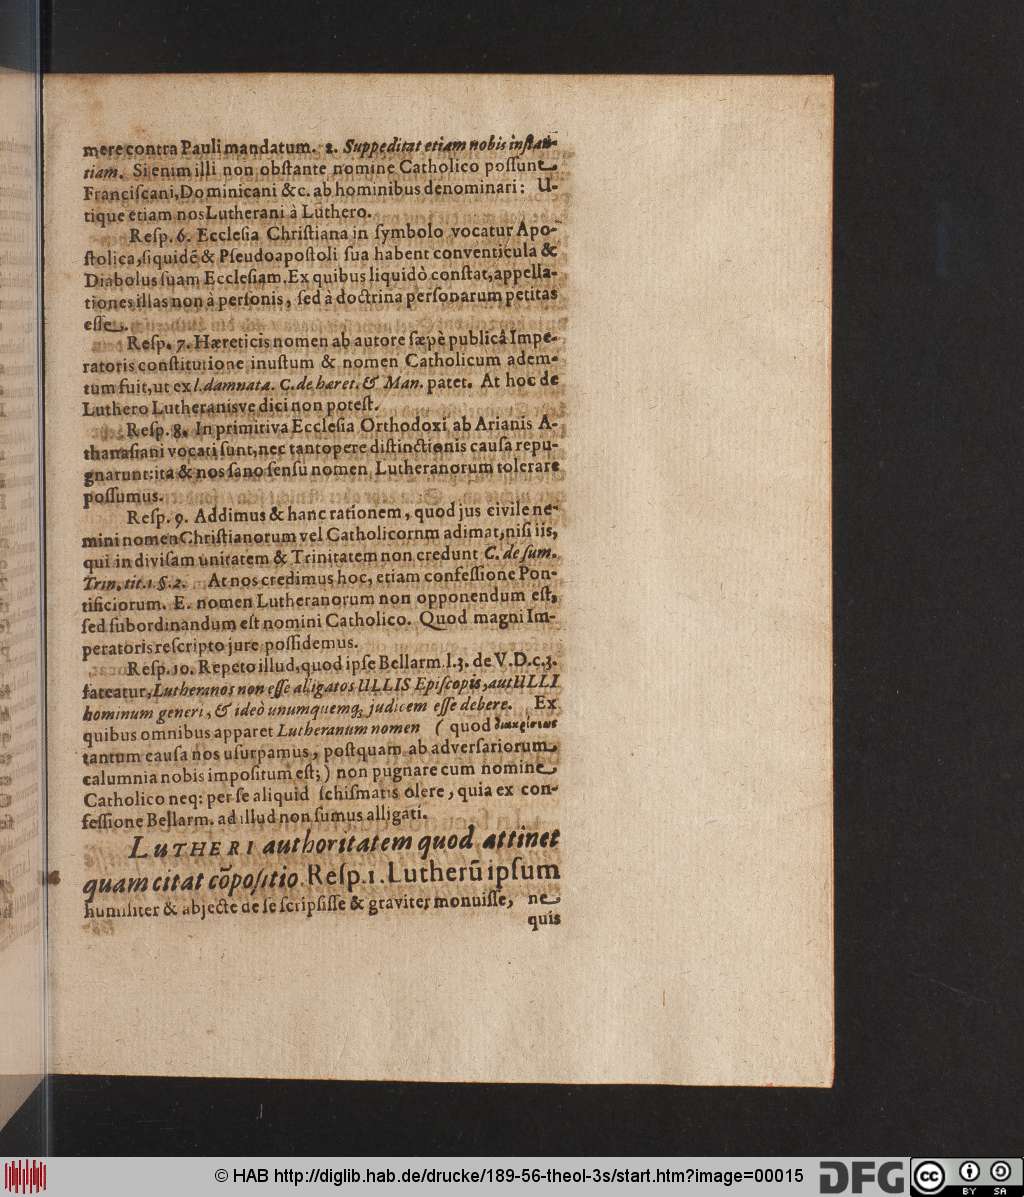 mere contra Pauli mandatum. 2. Suppeditat etiam nobis instan-
tiam. Si enim illi non obſtante nomine Catholico poſſunt
Franciſcani, Dominicani &c. ab hominibus denominari: U-
tique etiam nos Lutherani à Luthero.
Reſp. 6. Eccleſia Chriſtiana in ſymbolo vocatur Apo-
ſtolica, ſiquidē & Pſeudoapoſtoli ſua habent conventicula &
Diabolus ſuam Eccleſiam. Ex quibus liquidò conſtat, appella-
tiones illas non à perſonis, ſed à doctrina perſonarum petitas
eſſe.
Reſp. 7. Hæreticis nomen ab autore ſæpè publicâ Impe-
ratoris conſtitutione inuſtum & nomen Catholicum adem-
tum fuit, ut ex l. damnata. C. de hæret. & Man. patet. At hoc de
Luthero Lutheranisve dici non poteſt.
Reſp. 8. In primitiva Eccleſia Orthodoxi ab Arianis A-
thanaſiani vocati ſunt, nec tantopere diſtinctionis cauſa repu-
gnarunt: ita & nos ſano ſenſu nomen Lutheranorum tolerare
poſſumus.
Reſp. 9. Addimus & hanc rationem, quod jus civile ne-
mini nomen Chriſtianorum vel Catholicornm adimat, niſi iis,
qui in diviſam unitatem & Trinitatem non credunt C. de ſum.
Trin. tit. 1 §. 2. At nos credimus hoc, etiam confeſſione Pon-
tificiorum. E. nomen Lutheranorum non opponendum eſt,
ſed ſubordinandum eſt nomini Catholico. Quod magni Im-
peratoris reſcripto jure poſſidemus.
Reſp. 10. Repeto illud, quod ipſe Bellarm. l. 3. de V. D. c. 3.
fateatur, Lutheranos non eſſe alligatos ULLIS Epiſcopis, aut ULLI
hominum generi, & ideò unumquemq; judicem eſſe debere. Ex
quibus omnibus apparet Lutheranum nomen ( quod διακρίσεως
tantum cauſa nos uſurpamus, poſtquam ab adverſariorum
calumnia nobis impoſitum eſt; ) non pugnare cum nomine
Catholico neq; per ſe aliquid ſchiſmatis olere, quia ex con-
feſſione Bellarm. ad illud non ſumus alligati.
LUTHERI authoritatem quod attinet
quam citat cōpoſitio. Reſp. 1. Lutherū ipſum
humiliter & abjecte de ſe ſcripſiſſe & graviter monuiſſe, ne
quis
© HAB http://diglib.hab.de/drucke/189-56-theol-3s/start.htm?image=00015
DFG
cc
BY SA